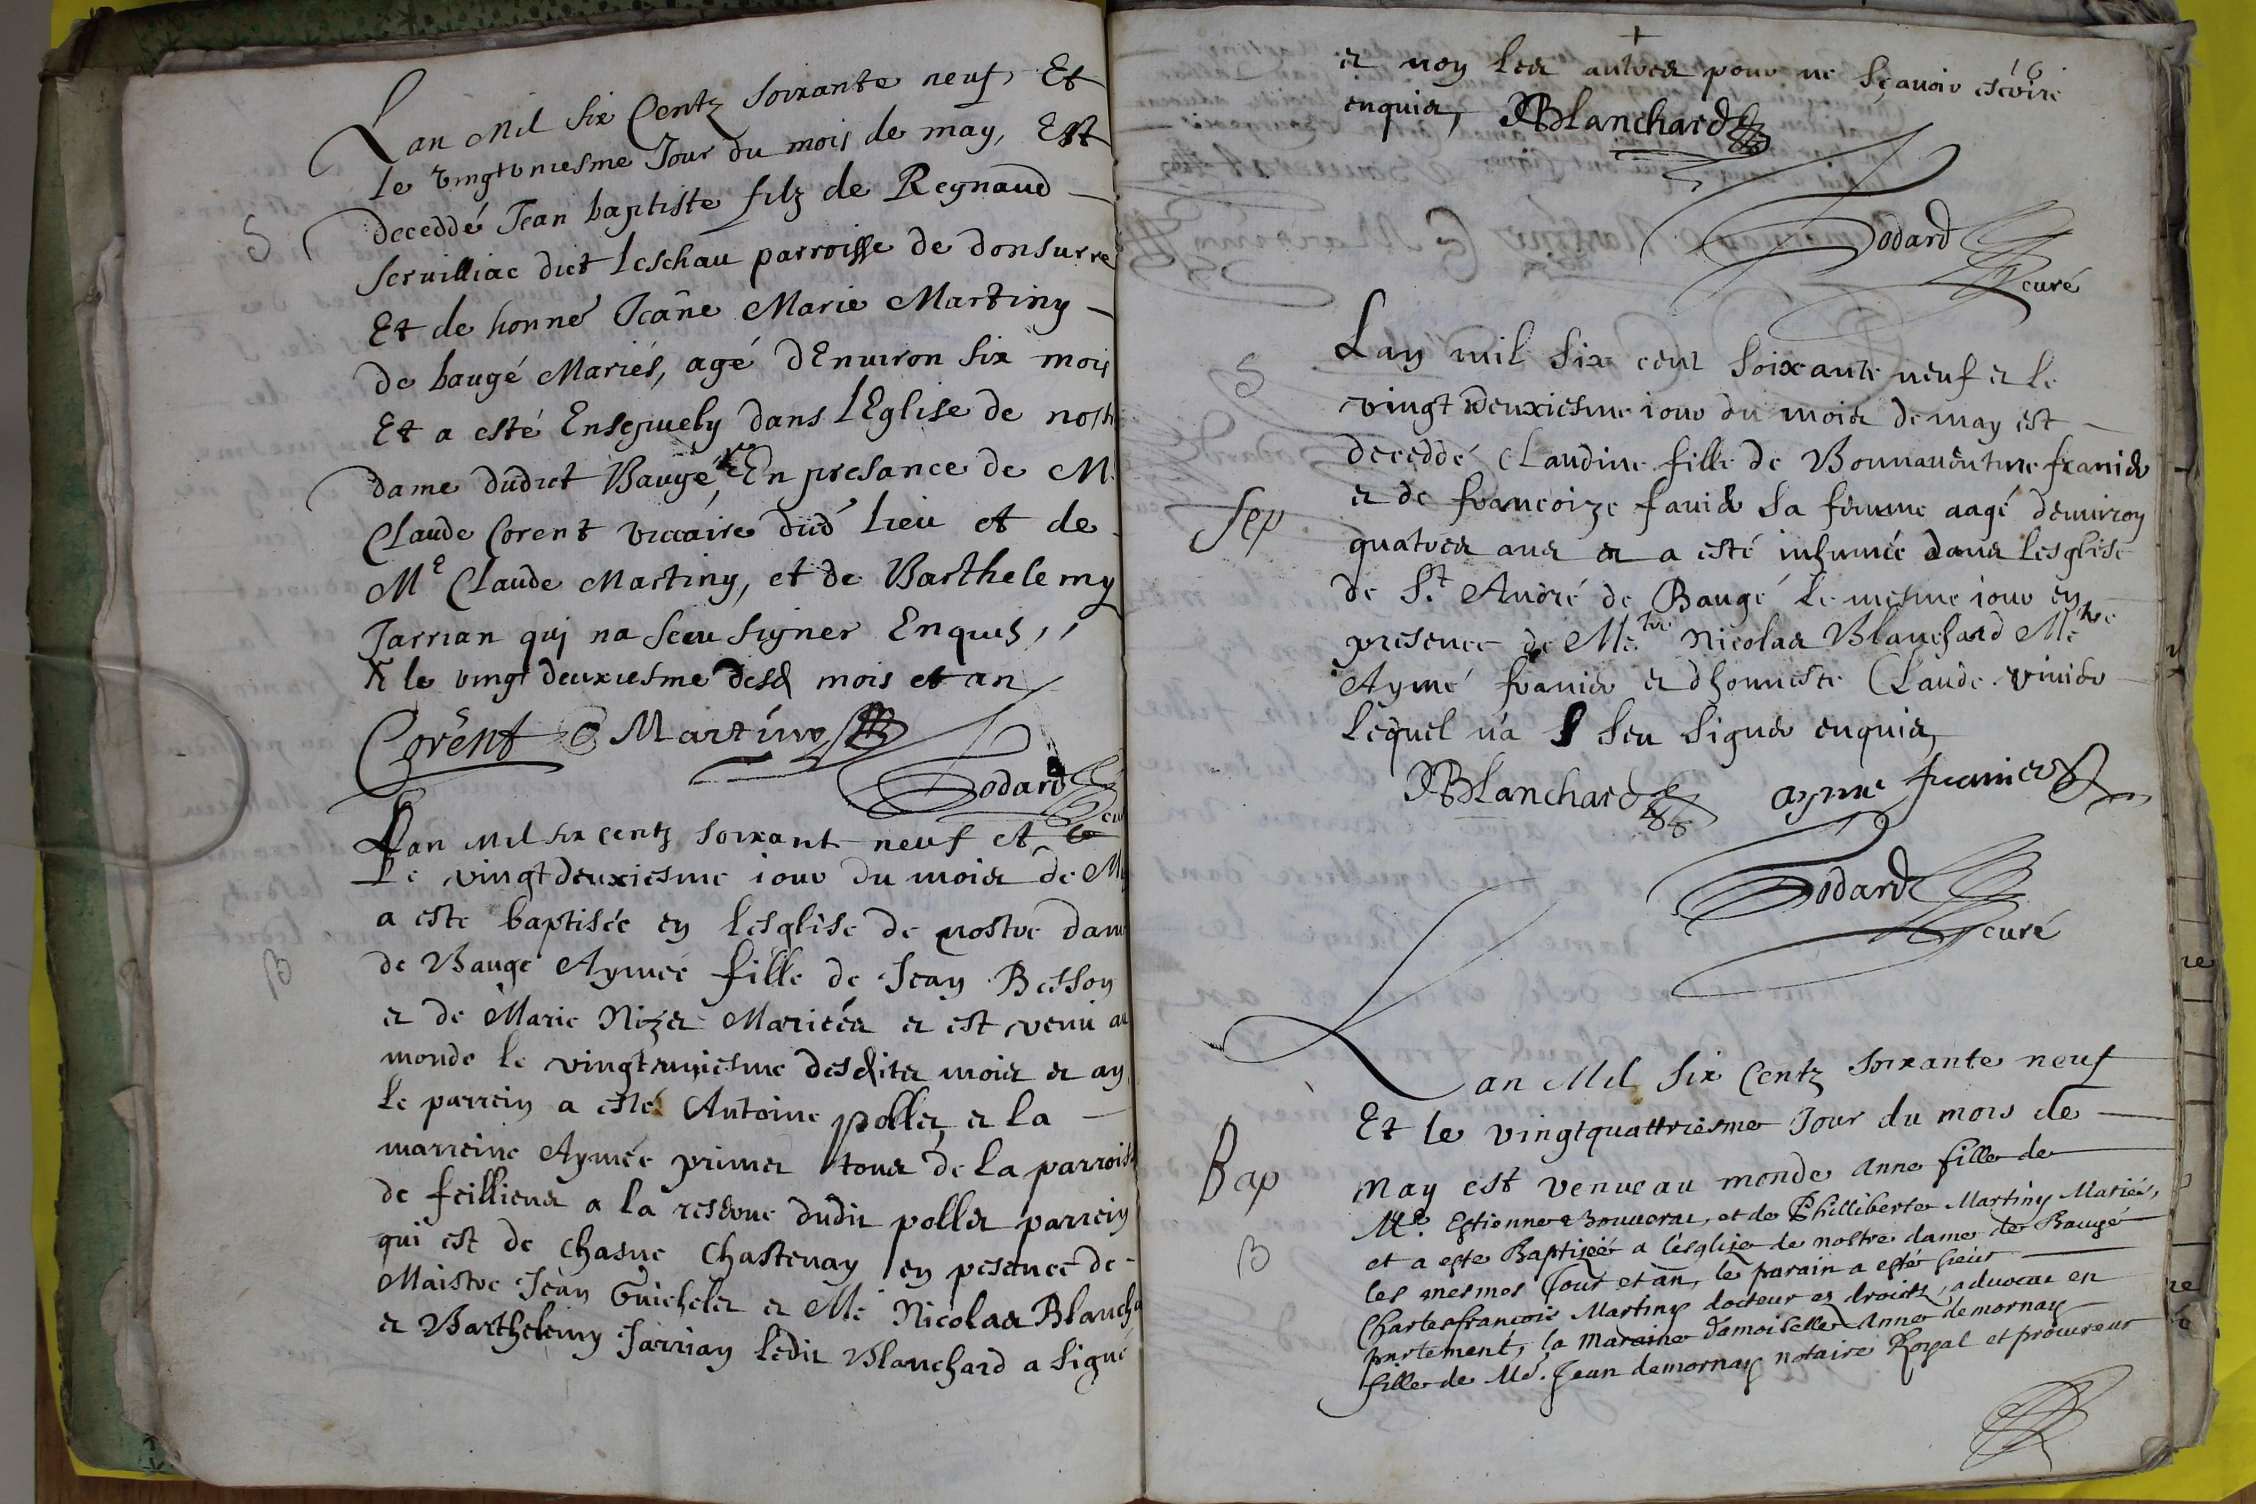 Lan Mil six Centz soixante neuf, Et
le vingtuniesme Jour du mois de may, Est
S
deceddé Jean baptiste filz de Regnaud
servilliac dict Leschau parroisse de donsurre
Et de honne Jeãne Marie Martiny
de baugé Mariés, agé dEnuiron six mois
Et a esté Ensepuely dans lEglise de nostre
dame dudict Baugé, En presance de M.
Claude Corent viccaire dud lieu et de
Me Claude Martiny, et de Barthelemy
Jarrian quj na sceu signer Enquis,
le vingt deuxiesme desd mois et an
Corent C Martiny
Godard
curé
Lan Mil six centz soixant neuf et le
Le vingtdeuxiesme iour du mois de May
a este baptisée en lesglise de nostre dame
B
de Bauge Aymée fille de Jean Besson
et de Marie Nizet Mariées et est venu au
monde le vingtuniesme desdites mois et an
Le parrein a esté Antoine pollet, et la
marreine Aymée primet tous de la parroisse
de feilliens a la reserve dudit pollet parrein
qui est de chasne Chastenay en pesence de
Maistre Jean Guichelet et Me Nicolas Blanchard
et Barthelemy Jarrian ledit Blanchard a signé
16
et non les autres pour ne sçavoir escrire
enquis, NBlanchard
Godard
curé
S
Lan mil six cent soixante neuf et le
vingt deuxiesme iour du mois de may est
deceddé Claudine fille de Bonnauenture franier
Sep
et de francoize favier sa femme aagé denuiron
quatres ans et a esté inhumée dans lesglise
de St. André de Baugé le mesme iour en
presence de Metre Nicolas Blanchard Metre
Aymé franier et dhonneste Claude vivier
Lequel n'a sceu signer enquis,
NBlanchard ayme franier
Godard
curé
Lan Mil six Centz soixante neuf
Et le vingtquattriesme Jour du mois de
Bap
May est venue au monde Anne fille de
Me. Estienne Bouuerat, et de Philliberte Martiny Mariés,
B
et a este Baptizéé a l'esglize de nostre dame de Baugé
les mesmes Jour et an, le parain a esté sieur
Charlesfrancois Martiny docteur es droicts, aduocat en
parlement, la Maraine damoiselle Anne demornay
fille de Me. Jean demornay notaire Royal et procureur